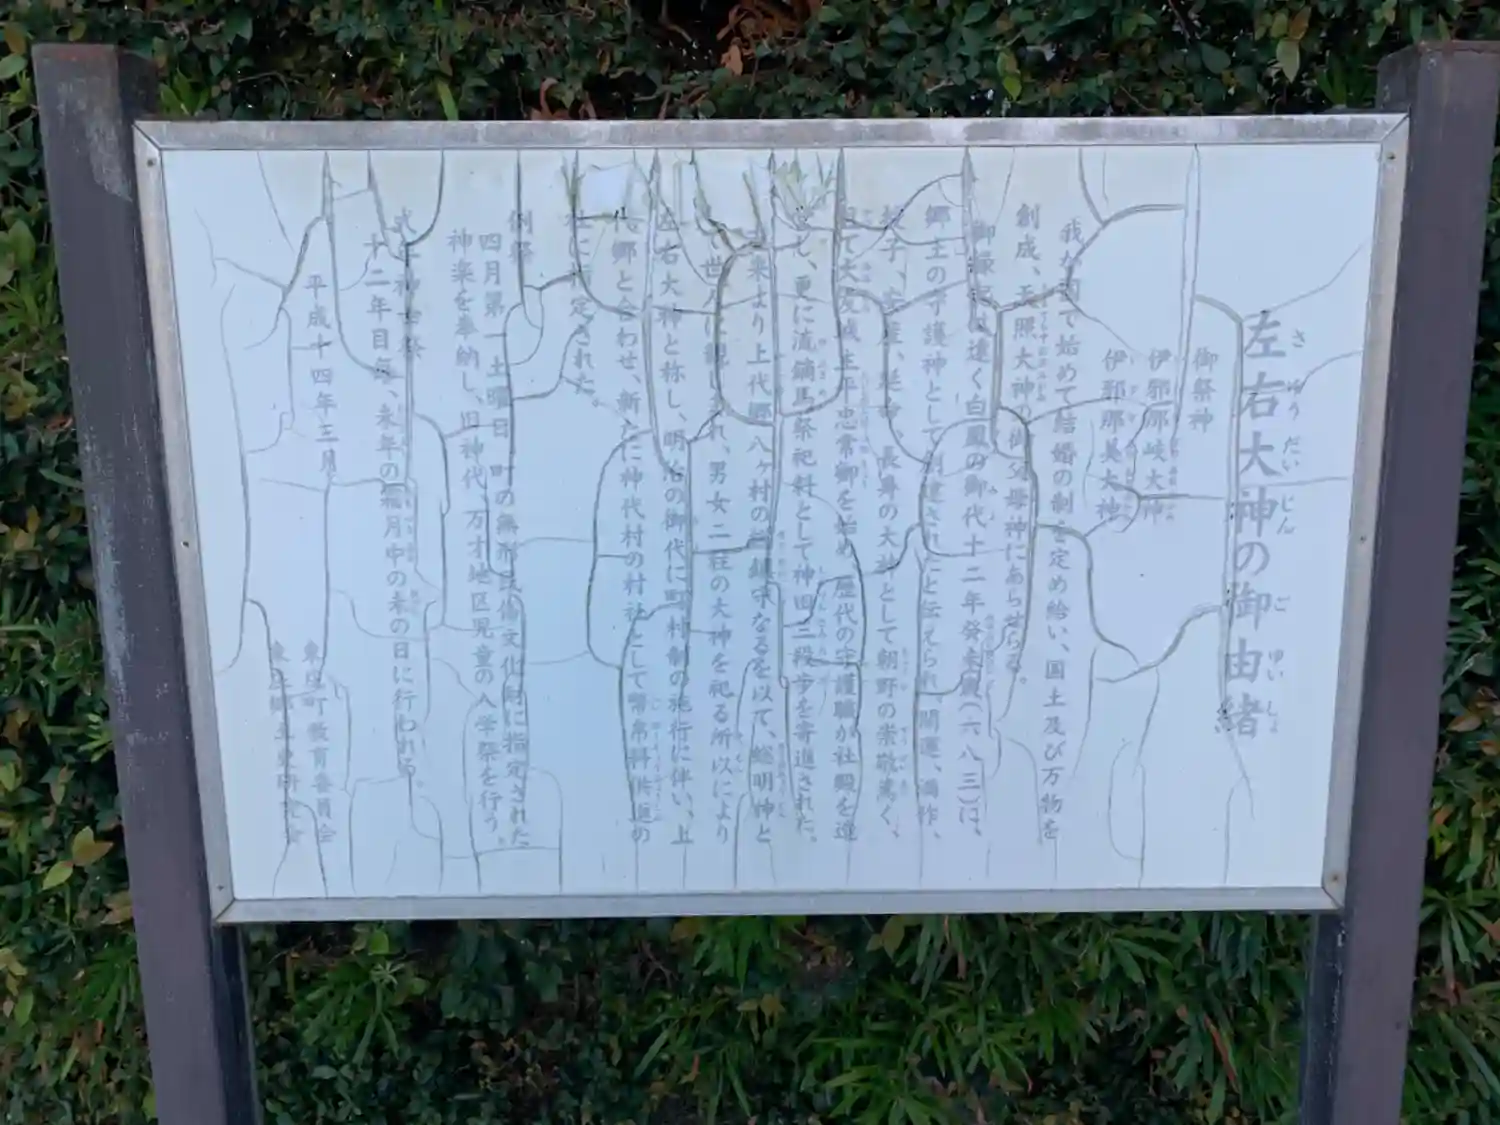 左右大神の御由緒
さ ゆう だい じん ご ゆい しょ
御祭神
伊邪那岐大神
伊邪那美大神
我が国で始めて結婚の制を定め給い、国土及び万物を
創成、天照大神の御父母神にあらせらる。
御縁起は遠く白鳳の御代十二年癸未歳(六八三)に、
郷土の守護神として創建されたと伝えられ、開運、満作、
授子、安産、延命、長寿の大神として朝野の崇敬篤く、
て大友城主平忠常卿を始め、歴代の守護職が社殿を造
し、更に流鏑馬祭祀料として神田三段歩を寄進された。
来より上代郷八ヶ村の総鎮守なるを以て、総明神と
い世人に親しまれ、男女二柱の大神を祀る所以により
左右大神と称し、明治の御代に町村制の施行に伴い、上
代郷と合わせ、新たに神代村の村社として幣帛料供進の
社に指定された。
例祭
四月第一土曜日 町の無形民俗文化財に指定された
神楽を奉納し、旧神代、万才地区児童の入学祭を行う。
式年神幸祭
十二年目毎、未年の霜月中の未の日に行われる
平成十四年三月
東庄町教育委員会
東庄郷土史研究会